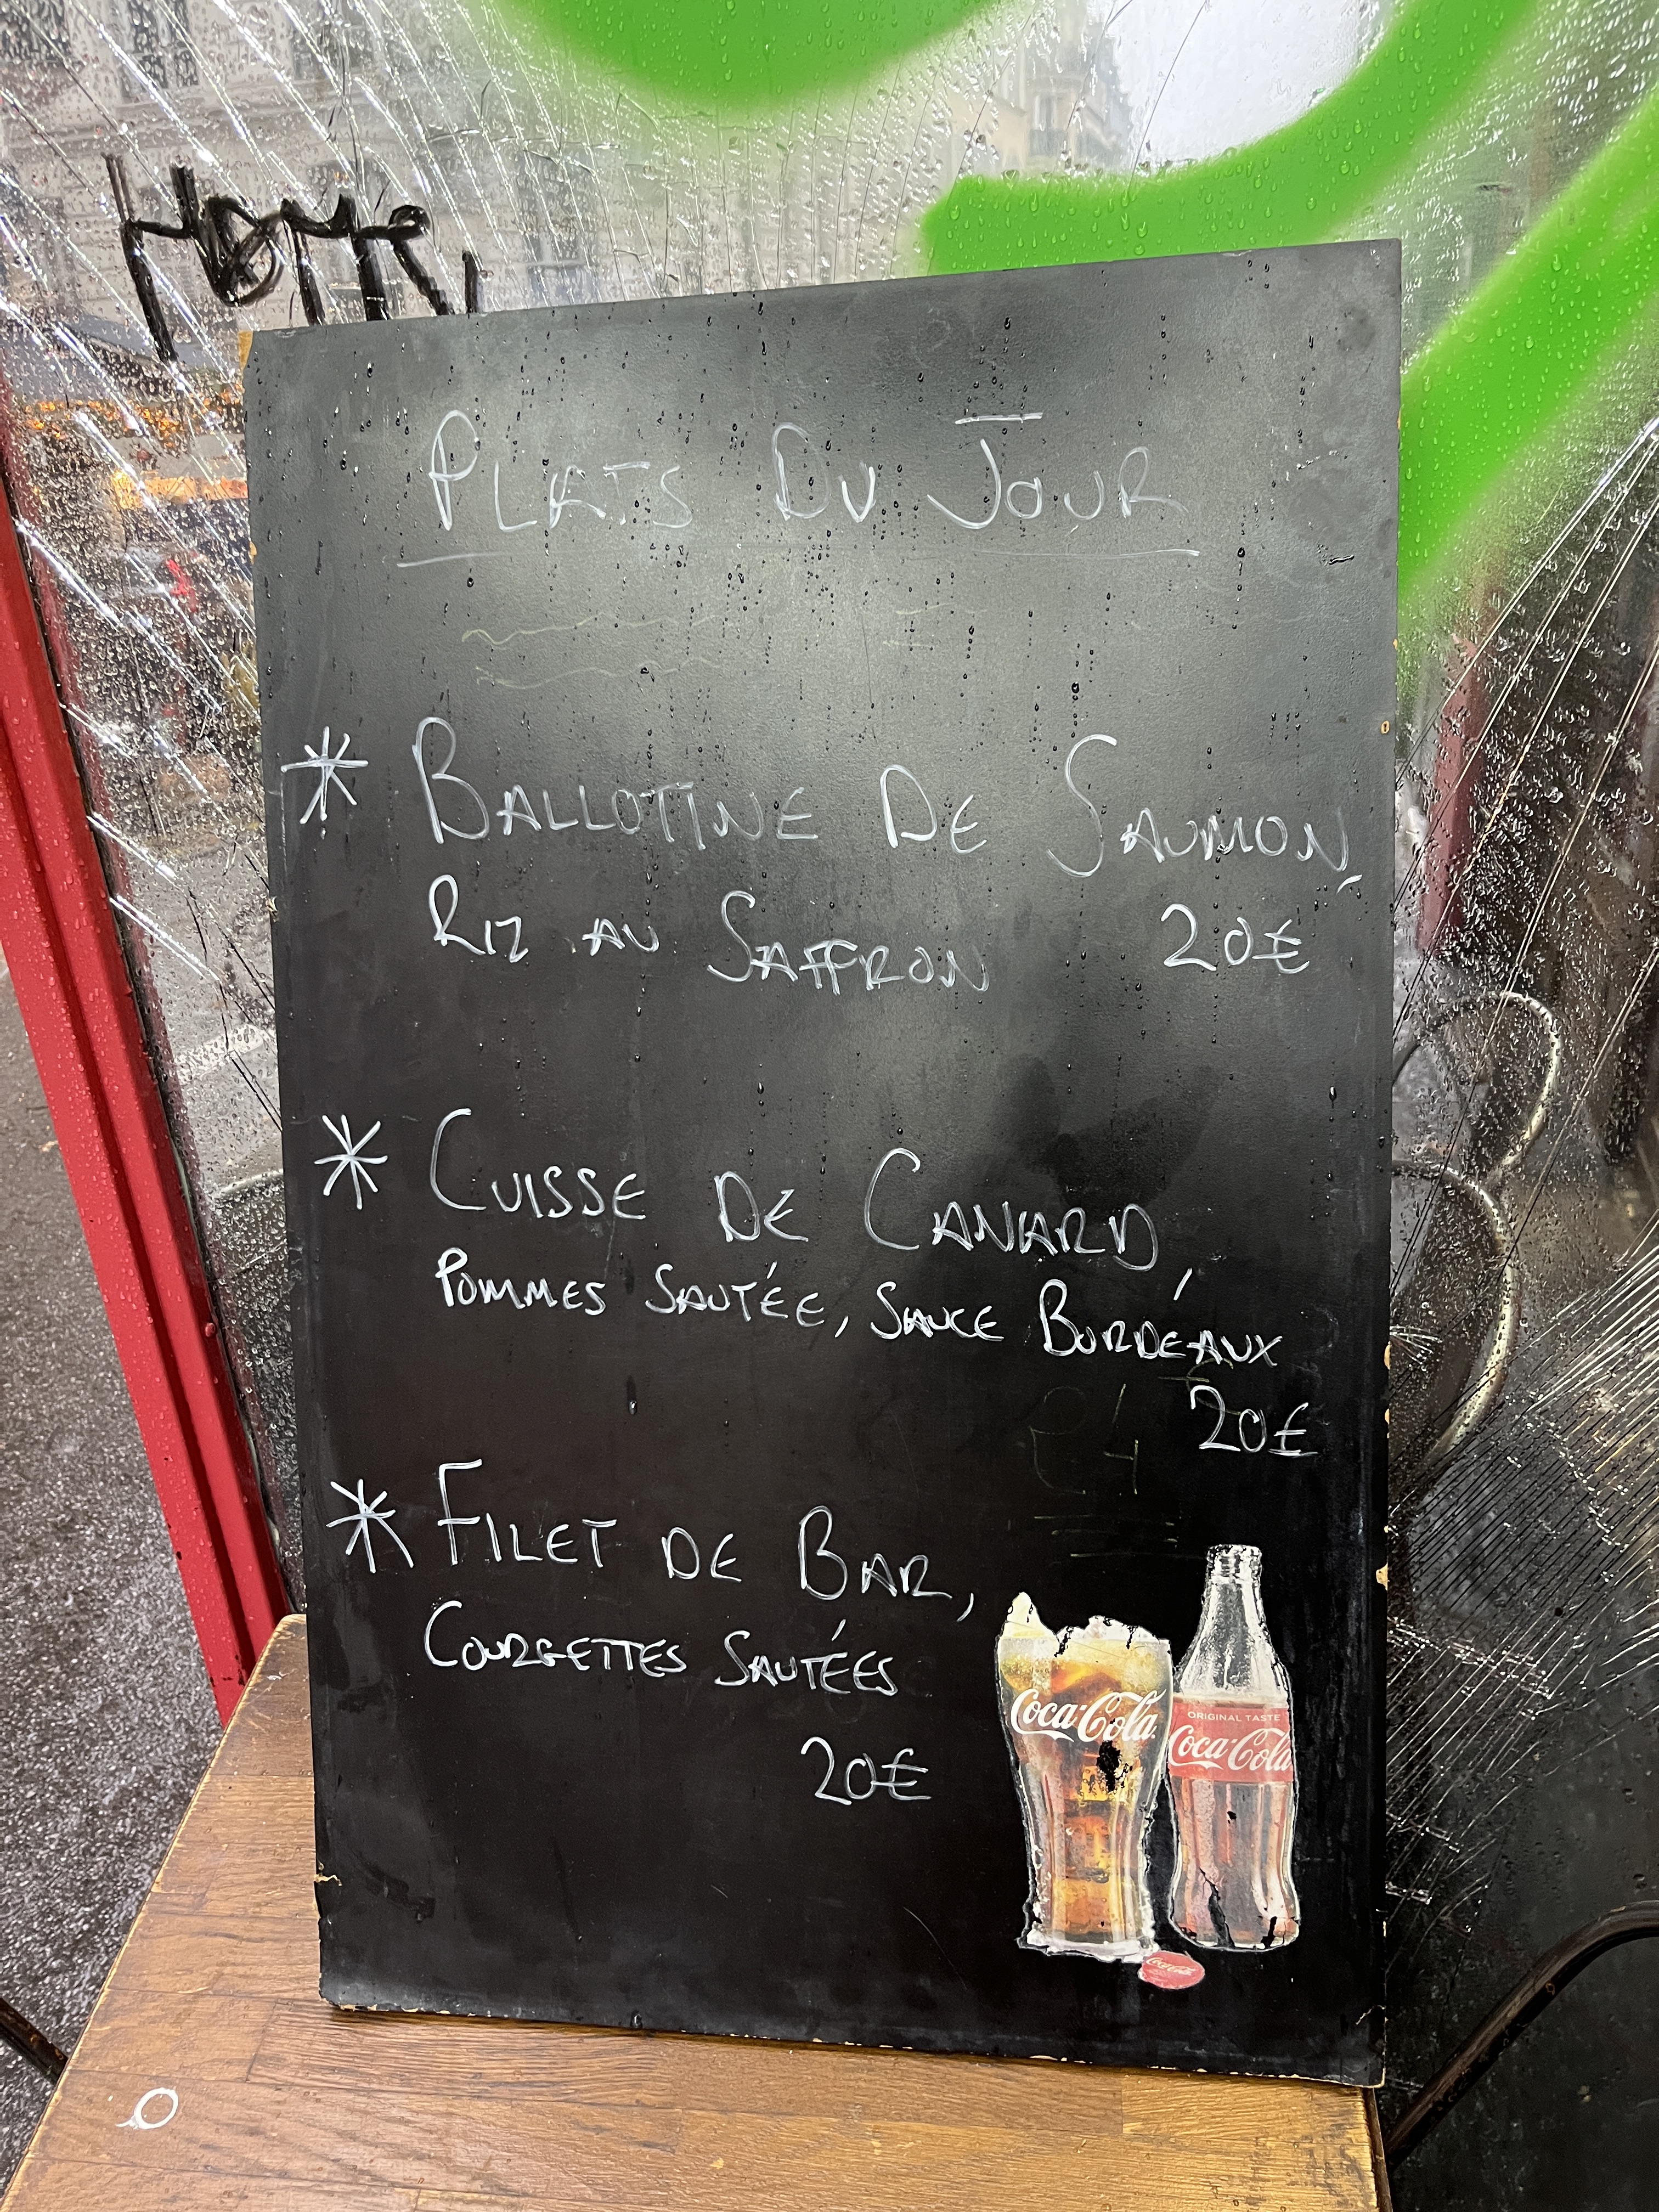 PLATS DU JOUR
* BALLOTTINE DE SAUMON,
RIZ AU SAFFRON 20€
* CUISSE DE CANARD,
POMMES SAUTÉE, SAUCE BORDEAUX
20€
* FILET DE BAR,
COURGETTES SAUTÉES
20€
Coca-Cola
ORIGINAL TASTE
Coca-Cola
Coca-Cola